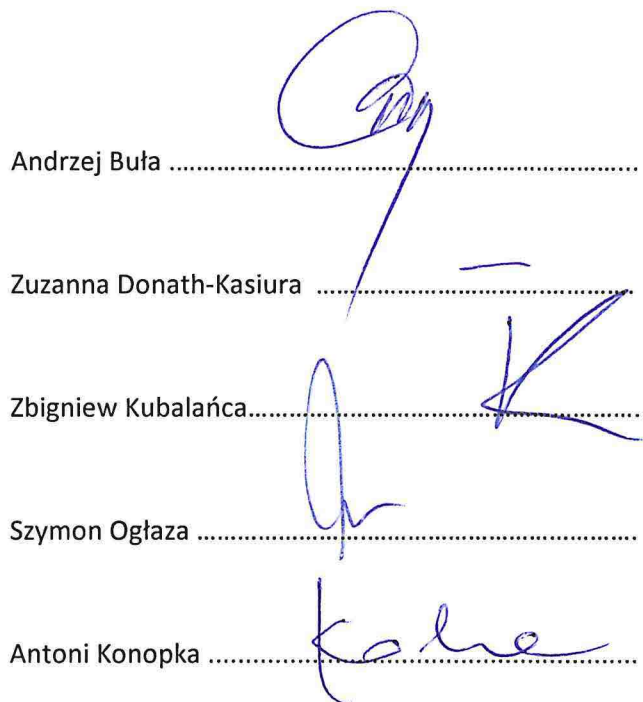 Andrzej Buła ........................................................
Zuzanna Donath-Kasiura ......................................
Zbigniew Kubalańca..............................................
Szymon Ogłaza .....................................................
Antoni Konopka ...................................................